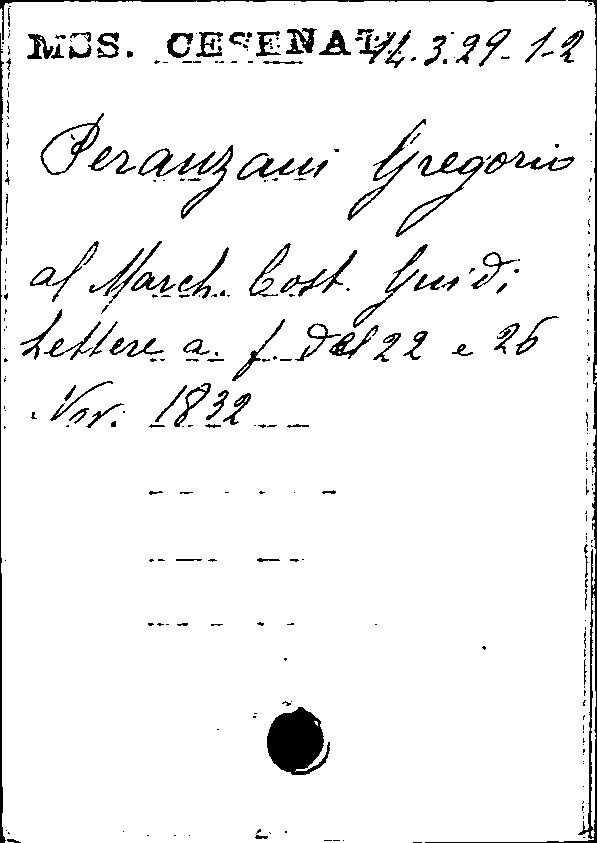 MSS. CESENATI 14.3.29-1-2
Peranzani Gregorio
al March. Cost. Guidi
Lettere a. f. del 22 e 26
Nov. 1832